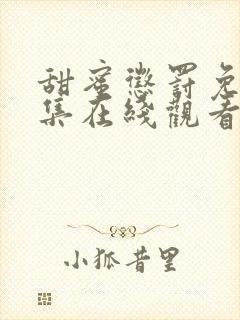 甜蜜懲罰免
集在綫觀看
小狐昔里